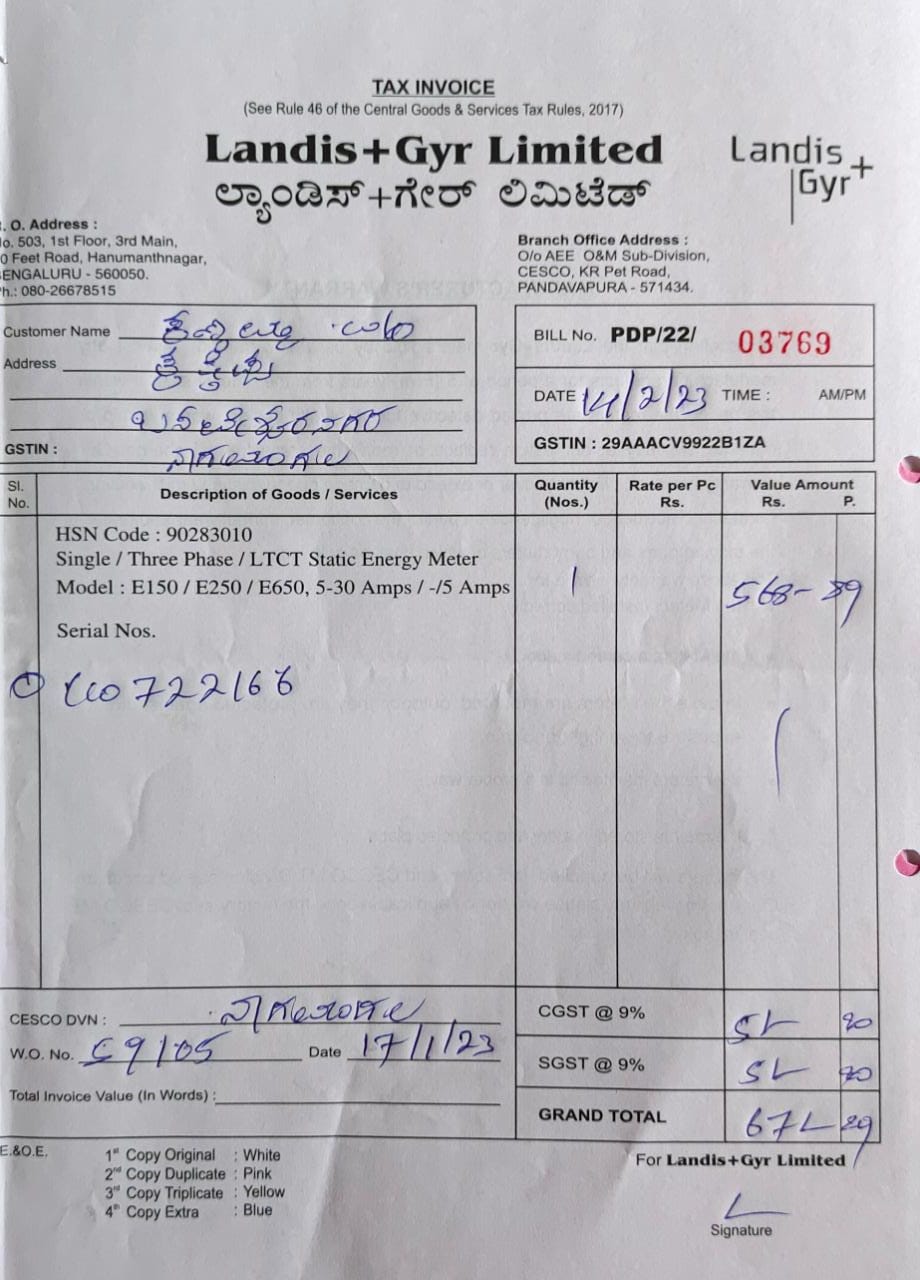 TAX INVOICE
(See Rule 46 of the Central Goods & Services Tax Rules, 2017)
Landis+Gyr Limited
ಲ್ಯಾಂಡಿಸ್+ಗೇರ್ ಲಿಮಿಟೆಡ್
Landis
Gyr+
. O. Address :
o. 503, 1st Floor, 3rd Main,
0 Feet Road, Hanumanthnagar,
ENGALURU - 560050.
h.: 080-26678515
Branch Office Address :
O/o AEE O&M Sub-Division,
CESCO, KR Pet Road,
PANDAVAPURA - 571434.
Customer Name
Address
GSTIN :
ನಾಗಮಂಗಲ
BILL No. PDP/22/ 03769
DATE 14/2/23 TIME : AM/PM
GSTIN : 29AAACV9922B1ZA
Sl. No. Description of Goods / Services Quantity (Nos.) Rate per Pc Rs. Value Amount Rs. P.
HSN Code : 90283010
Single / Three Phase / LTCT Static Energy Meter
Model : E150 / E250 / E650, 5-30 Amps / -/5 Amps 1 568-89
Serial Nos.
722166
CESCO DVN : ನಾಗಮಂಗಲ
W.O. No. 59/05 Date 17/1/23
Total Invoice Value (In Words) :
CGST @ 9%
SGST @ 9%
GRAND TOTAL
E.&O.E.
1st Copy Original : White
2nd Copy Duplicate : Pink
3rd Copy Triplicate : Yellow
4th Copy Extra : Blue
For Landis+Gyr Limited
Signature